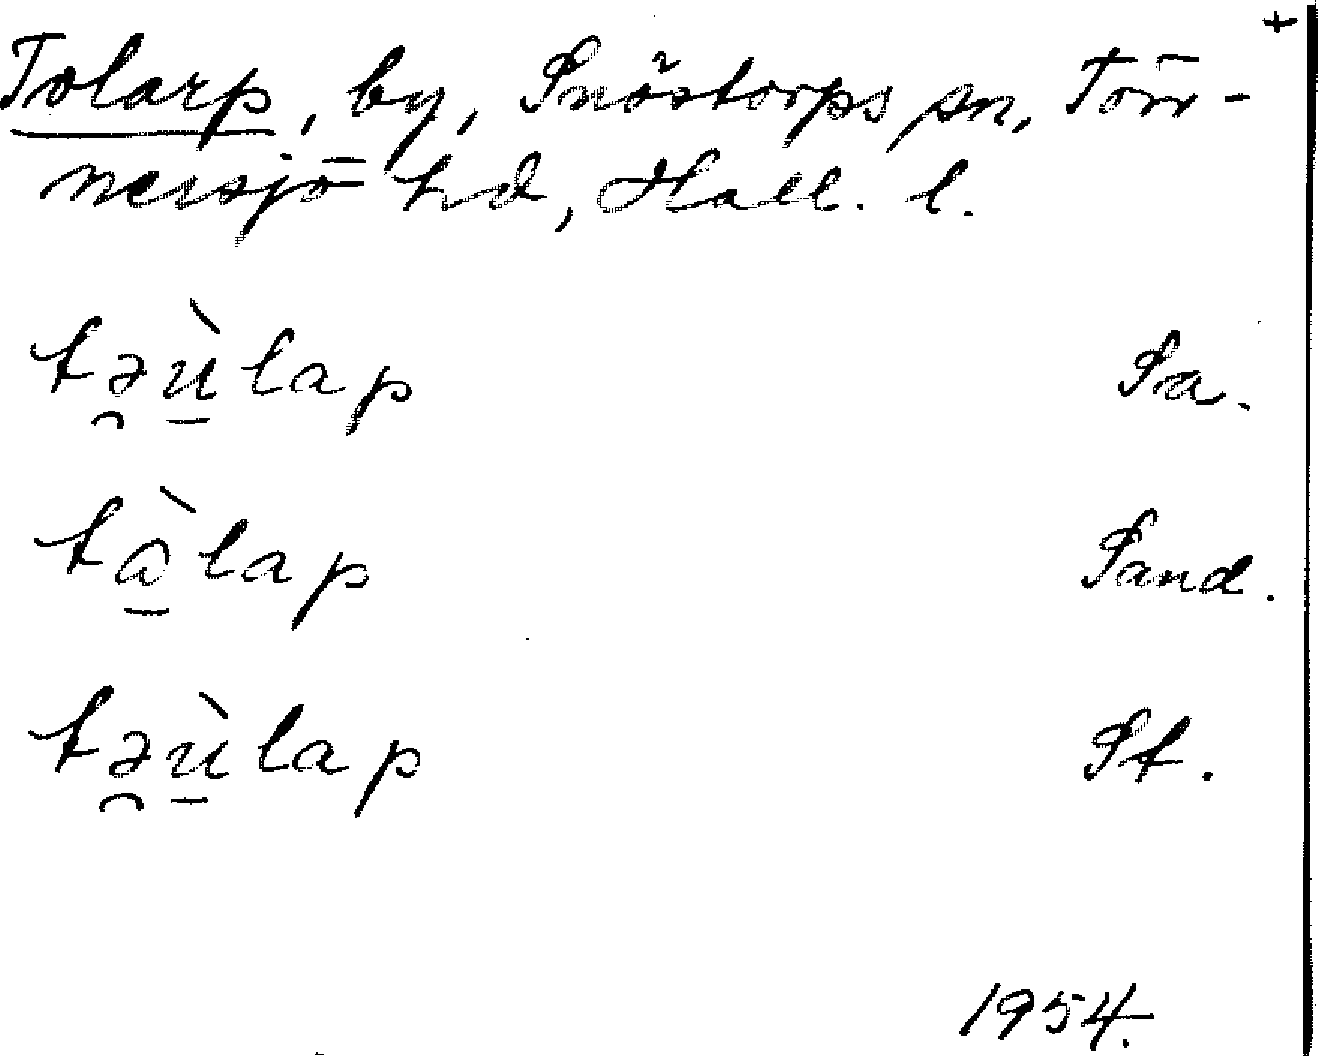 +
Tolarp, by, Snöstorps sn, Tön-
nersjö hd, Hall. l.
tə̯ṳ̀lap Sa.
tạ̀lap Sand.
tə̯ṳ̀lap St.
1954.